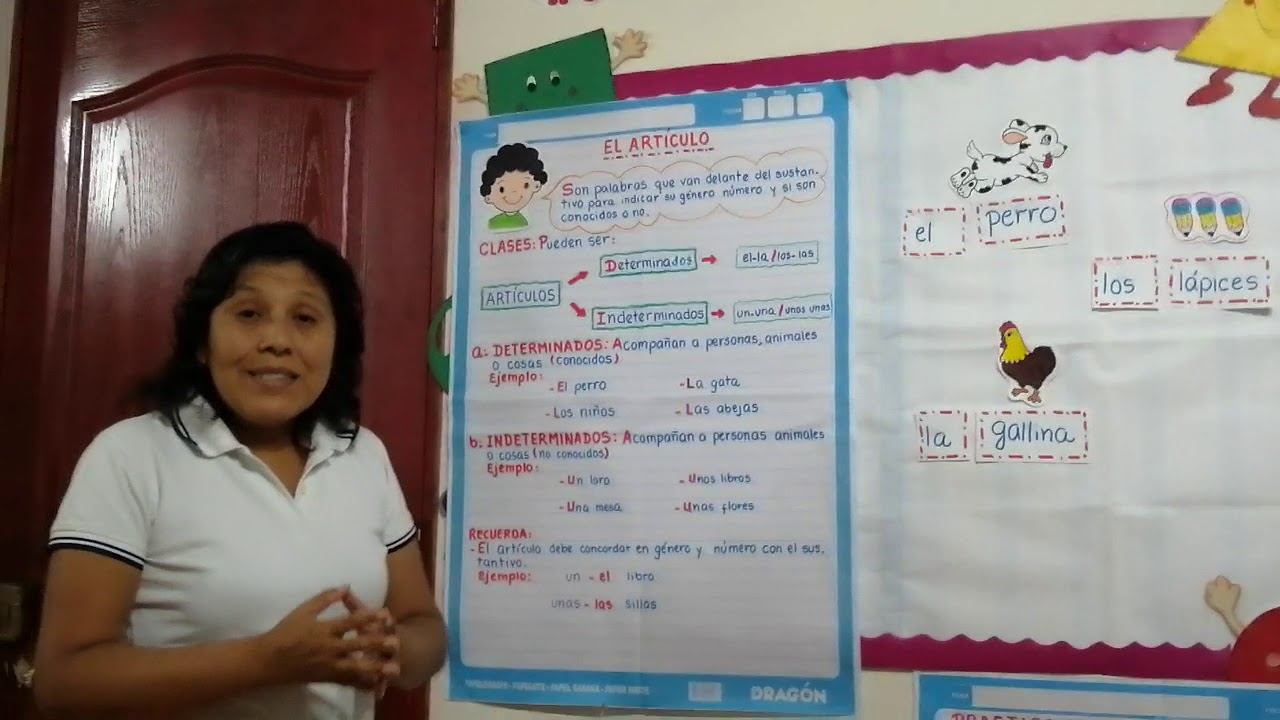 EL ARTÍCULO
Son palabras que van delante del sustan-
tivo para indicar su género número y si son
conocidos o no.
CLASES: Pueden ser:
ARTÍCULOS
Determinados
el-la/los-las
Indeterminados
un-una/unos unas
a: DETERMINADOS: Acompañan a personas, animales
o cosas (conocidos)
Ejemplo:
- El perro - La gata
- Los niños - Las abejas
b: INDETERMINADOS: Acompañan a personas animales
o cosas (no conocidos)
Ejemplo:
- Un loro - Unos libros
- Una mesa - Unas flores
RECUERDA:
- El artículo debe concordar en género y número con el sus.
tantivo.
Ejemplo: un - el libro
unas - las sillas
DRAGÓN
el perro
los lápices
la gallina